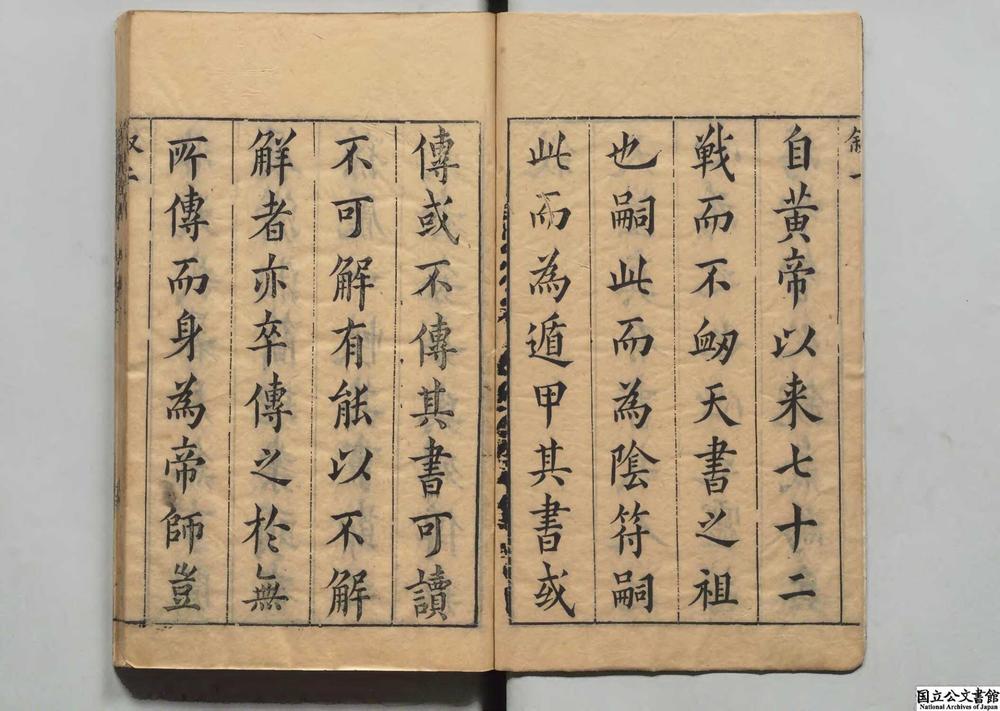 自黃帝以来七十二
戰而不衂天書之祖
也嗣此而為陰符嗣
此而為遁甲其書或
傳或不傳其書可讀
不可解有能以不解
解者亦卒傳之於無
所傳而身為帝師豈
国立公文書館
National Archives of Japan